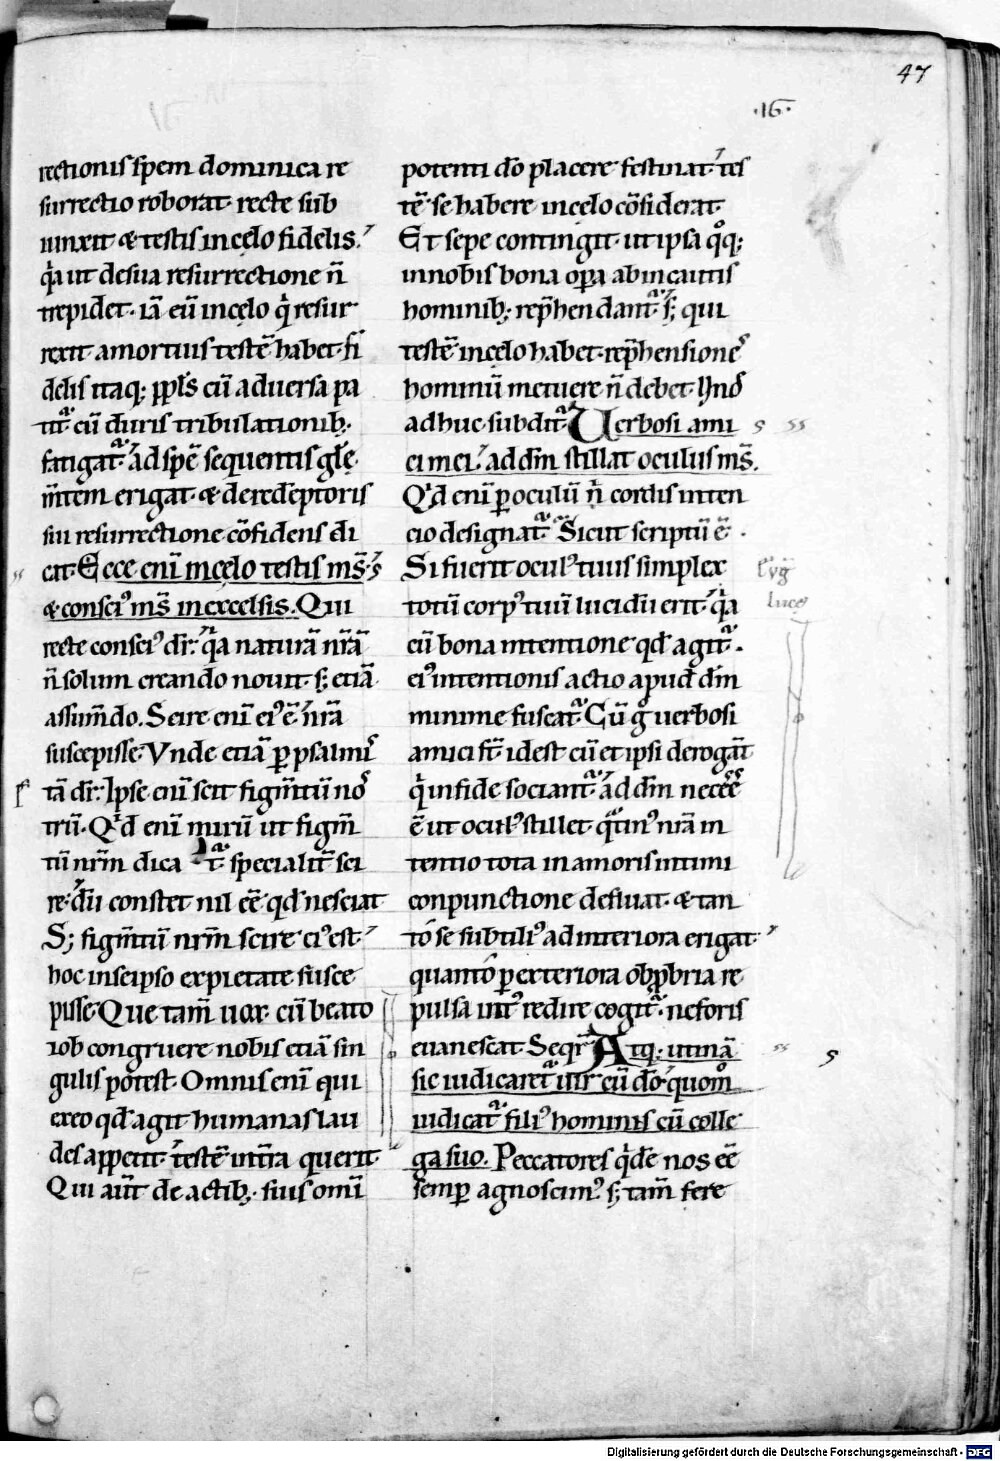 47
·16·
rectionis spem dominica re
surrectio roborat· recte sub
iunxit & testis in cęlo fidelis.
qͣa ut de sua resurrectione n̄
trepidet· iā eū in cęlo qͥ resur
rexit a mortuis testē habet· fi
delis itaq; ppl̄s cū aduersa pa
tit᷑ cū duris tribulationib;·
fatigat᷑ ad spē sequentis gl̄ę
m̄tem erigat· & de redēptoris
sui resurrectione cōfidens di
cat· Ecce enī in cęlo testis ms̄·
& consciꝰ ms̄ in excelsis. Qui
recte consciꝰ dr̄· qͣa naturā nr̄ā
n̄ solum creando nouit· s; etiā
assum̄do. Scire enī eiꝰ ē nr̄ā
suscepisse· Vnde etiā ꝑ psalmi
tā dr̄· Ipse enī scit figm̄tū no
trū· Qͥd enī mirū ut figm̄
tū nrm̄ dica t᷑ specialit̄ sci
re· dū constet nil eē qd̄ nesciat
S; figm̄tū nrm̄ scire eiꝰ est·
hoc in seipso ex pietate susce
pisse· Que tam̄ uox cū beato
iob congruere nobis etiā sin
gulis potest· Omnis enī qui
ex eo qd̄ agit humanas lau
des appetit· testē in tr̄ra querit
Qui aūt de actib;· suis omi
potenti dō placere festinat· tes
tē se habere in cęlo cōsiderat·
Et sepe contingit· ut ipsa qͦq;
in nobis bona oꝑa ab incautis
hominib;· rep̄hendant᷑· s; qui
testē in cęlo habet· rep̄hensionē
hominū metuere n̄ debet·
adhuc subdit᷑· Uerbosi ami
ci mei· ad dm̄ stillat oculus ms̄.
Qͥd enī ꝑ oculū n̄ cordis inten
cio designat᷑· Sicut scriptū ē·
Si fuerit oculꝰ tuus simplex
totū corpꝰ tuū lucidū erit· qͣa
cū bona intentione qd̄ agit᷑·
eiꝰ intentionis actio apud dm̄
minime fuscat᷑· Cū gͦ uerbosi
amici st̄· id est cū et ipsi derogāt
qͥ in fide sociant᷑· ad dm̄ neceē
ē ut oculꝰ stillet· qͣtinꝰ nr̄a in
tentio tota in amoris intimi
conpunctione defluat· & tan
to se subtiliꝰ ad interiora erigat·
quanto ꝑ exteriora obprobria re
pulsa intꝰ redire cogit᷑· ne foris
euanescat· Seqr̄ Atq; utinā
sic iudicaret᷑ uir cū dō· quom̄
iudicat᷑ filiꝰ hominis cū colle
ga suo. Peccatores qͥde nos eē
semꝑ agnoscimꝰ· s; tam̄ fere
luce
Digitalisierung gefördert durch die Deutsche Forschungsgemeinschaft - DFG